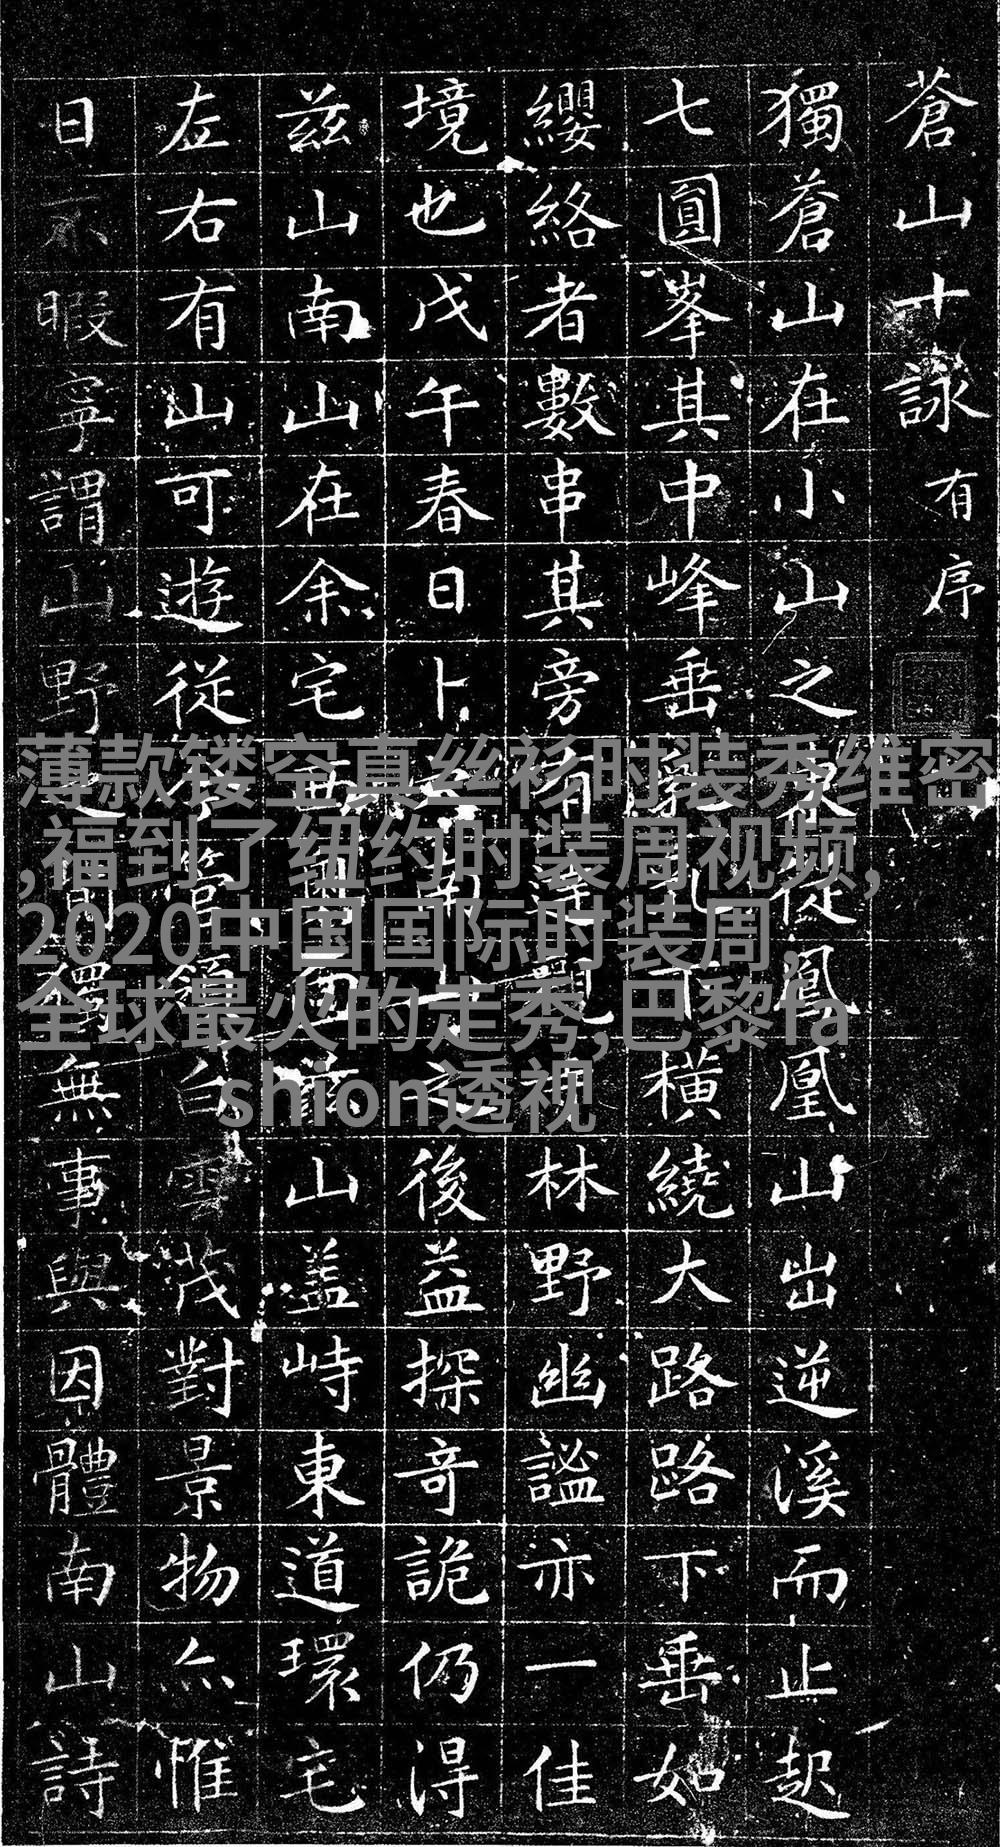 蒼山十詠有序
獨蒼山在小山之東從鳳凰山出逆溪而止起
七圓峯其中峰垂乳下橫繞大路路下垂如
纓絡者數串其旁有林野幽謐亦一佳
境也戊午春日卜南山之後益探奇詭仍得
茲山南山在余宅西面茲山蓋峙東道環宅
左右有山可遊從今管領白雲茂對景物亦惟
日不暇寧謂山野之間獨無事與因體南山詩
薄款镂空真丝衫时装秀维密
,福到了纽约时装周视频,
2020中国国际时装周,
全球最火的走秀,巴黎fa
shion透视